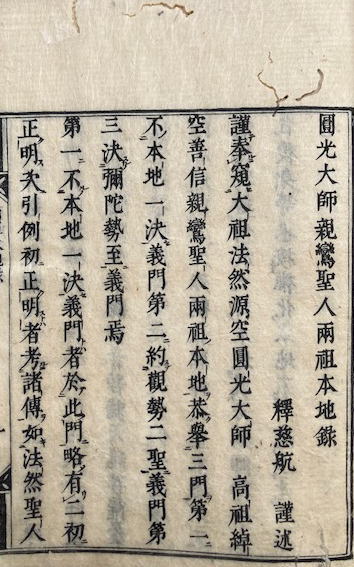 圓光大師親鸞聖人兩祖本地錄
釋慈航　謹述
謹奉窺大祖法然源空圓光大師　高祖綽
空善信親鸞聖人兩祖本地恭舉三門第一
不本地一決義門第二約觀勢二聖義門第
三決彌陀勢至義門焉
第一不本地一決義門者於此門略有二初
正明次引例初正明者考諸傳如法然聖人